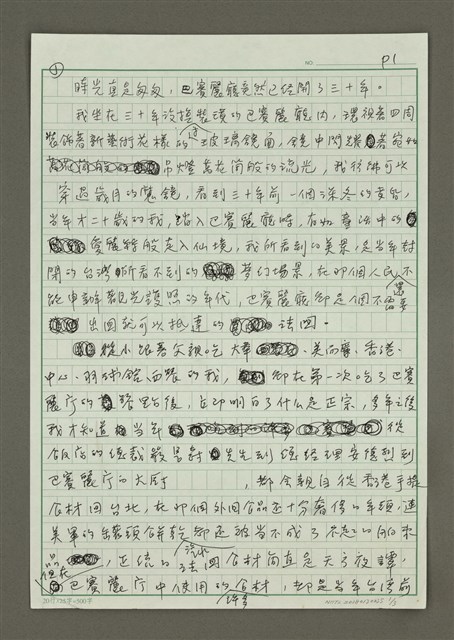 ① P1
NO.
時光真是匆匆，巴賽麗廳竟然已經開了三十年。
我坐在三十年後換裝璜的巴賽麗廳內，環視著四周
裝飾著新藝術花樣的玻璃鏡角，鏡中閃爍著宛如
吊燈萬花筒般的流光，我彷彿可以
穿過歲月的魔鏡，看到三十年前一個深冬的黃昏，
當年才二十歲的我，踏入巴賽麗廳時，有如童話中的
愛麗絲般走入仙境，我所看到的美景，是當年封
閉的台灣所看不到的夢幻場景，在那個人民還不
能申請觀光護照的年代，巴賽麗廳卻是個不需要
出國就可以抵達的法國。
從小跟著父親吃大華、美而廉、香港、
中心、羽球館西餐的我，卻在第一次吃了巴賽
麗廳的後，立即明白了什么是正宗，多年之後
我才知道當年從
飯店的總裁嚴長壽先生到經理
巴賽麗廳的大廚，都會親自從香港手提
食材回台北，在那個外國食品還十分奢侈的年頭，連
美軍的罐頭餅乾都還被當不成了不起的舶來
品，正統的法國食材簡直是天方夜譚，
但在巴賽麗廳中使用的許多食材，都是當年台灣前